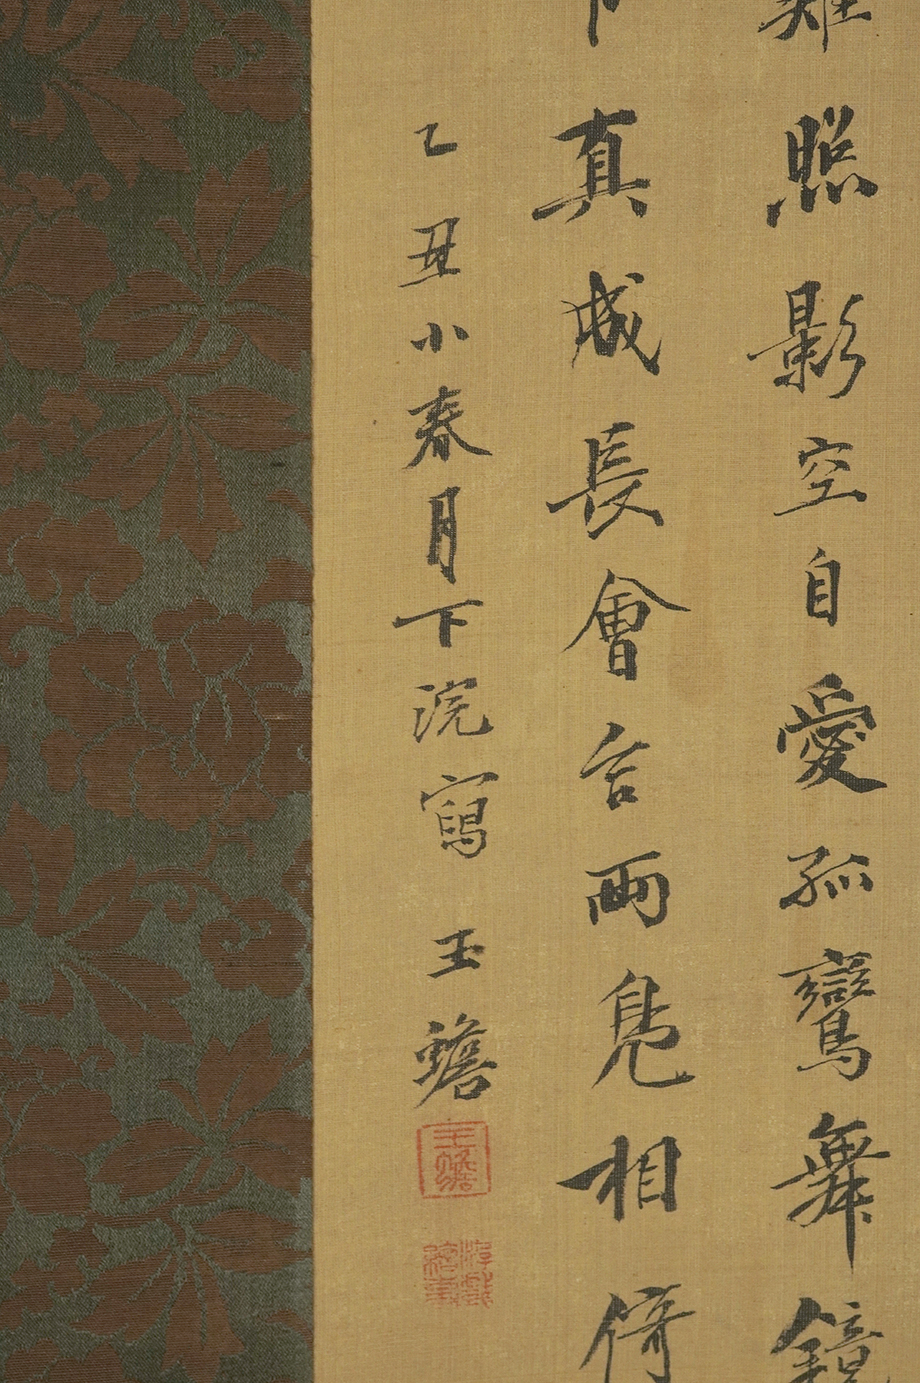 照影空自愛孤鸞舞鏡
真成長會合兩鳧相倚
乙丑小春月下浣寫 玉蟾
玉蟾
游戲